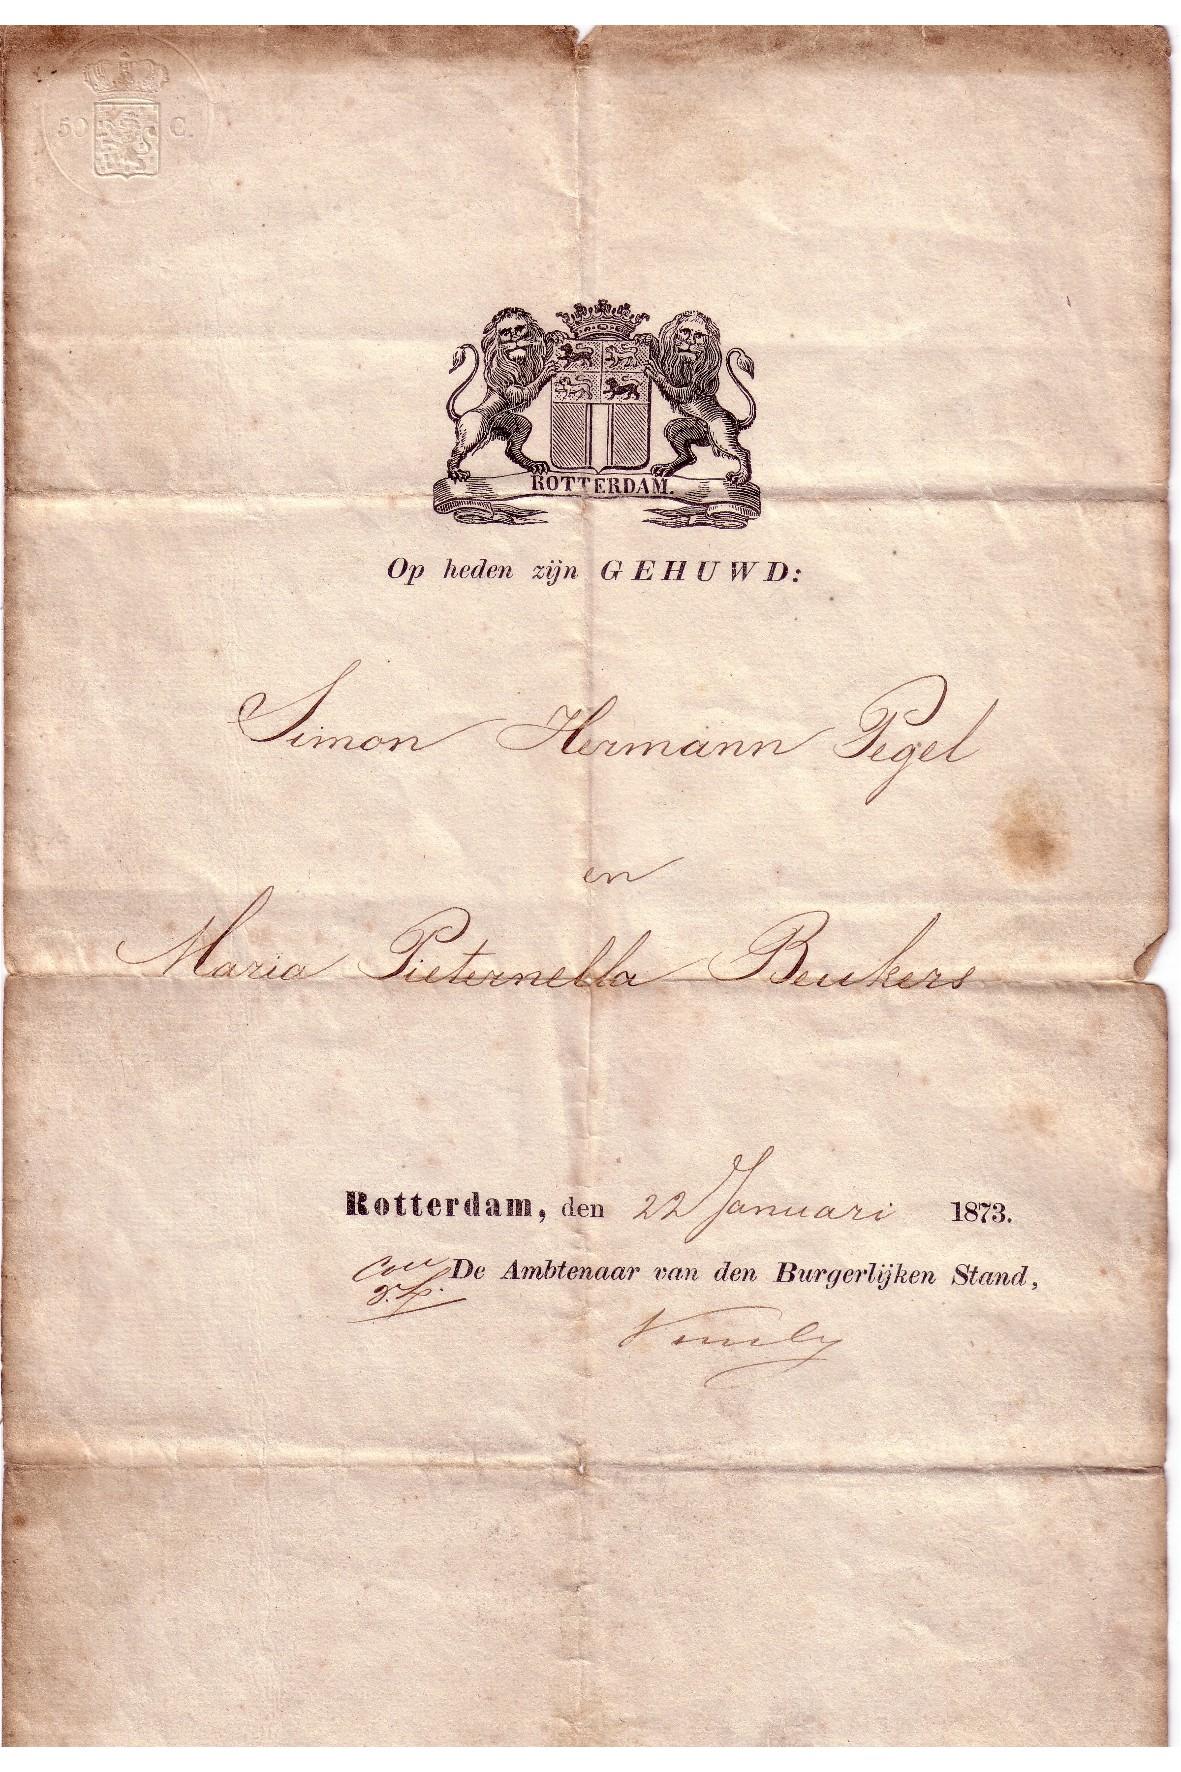 50 C.
ROTTERDAM.
Op heden zijn GEHUWD:
Simon Hermann Pegel
en
Maria Pieternella Beukers
Rotterdam, den 22 Januari 1873.
De Ambtenaar van den Burgerlijken Stand,